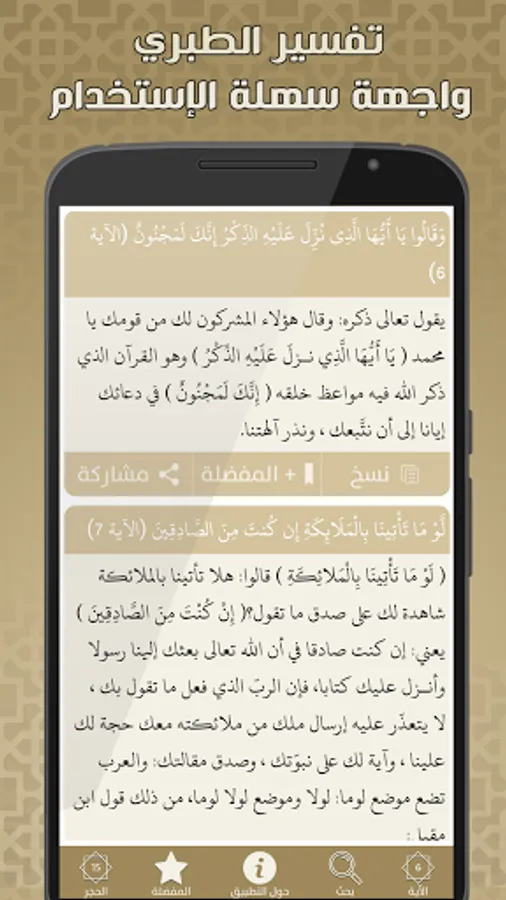 تفسير الطبري
واجهة سهلة الإستخدام
وَقَالُوا يَا أَيُّهَا الَّذِى نُزِّلَ عَلَيْهِ الذِّكْرُ إِنَّكَ لَمَجْنُونٌ (الآية
6)
يقول تعالى ذكره: وقال هؤلاء المشركون لك من قومك يا
محمد ( يَا أَيُّهَا الَّذِي نـزلَ عَلَيْهِ الذِّكْرُ ) وهو القرآن الذي
ذكر الله فيه مواعظ خلقه ( إِنَّكَ لَمَجْنُونٌ ) في دعائك
إيانا إلى أن نتَّبعك ، ونذر آلهتنا.
نسخ
+ المفضلة
مشاركة
لَّوْ مَا تَأْتِينَا بِالْمَلَايِكَةِ إِن كُنتَ مِنَ الصَّادِقِينَ (الآية 7)
( لَوْ مَا تَأْتِينَا بِالْمَلائِكَةِ ) قالوا: هلا تأتينا بالملائكة
شاهدة لك على صدق ما تقول؟( إِنْ كُنْتَ مِنَ الصَّادِقِينَ )
يعني: إن كنت صادقا في أن الله تعالى بعثك إلينا رسولا
وأنـزل عليك كتابا، فإن الربّ الذي فعل ما تقول بك ،
لا يتعذّر عليه إرسال ملك من ملائكته معك حجة لك
علينا ، وآية لك على نبوّتك ، وصدق مقالتك: والعرب
تضع موضع لوما: لولا وموضع لولا لوما، من ذلك قول ابن
مقبل :
6
الآية
بحث
حول التطبيق
المفضلة
15
الحجر